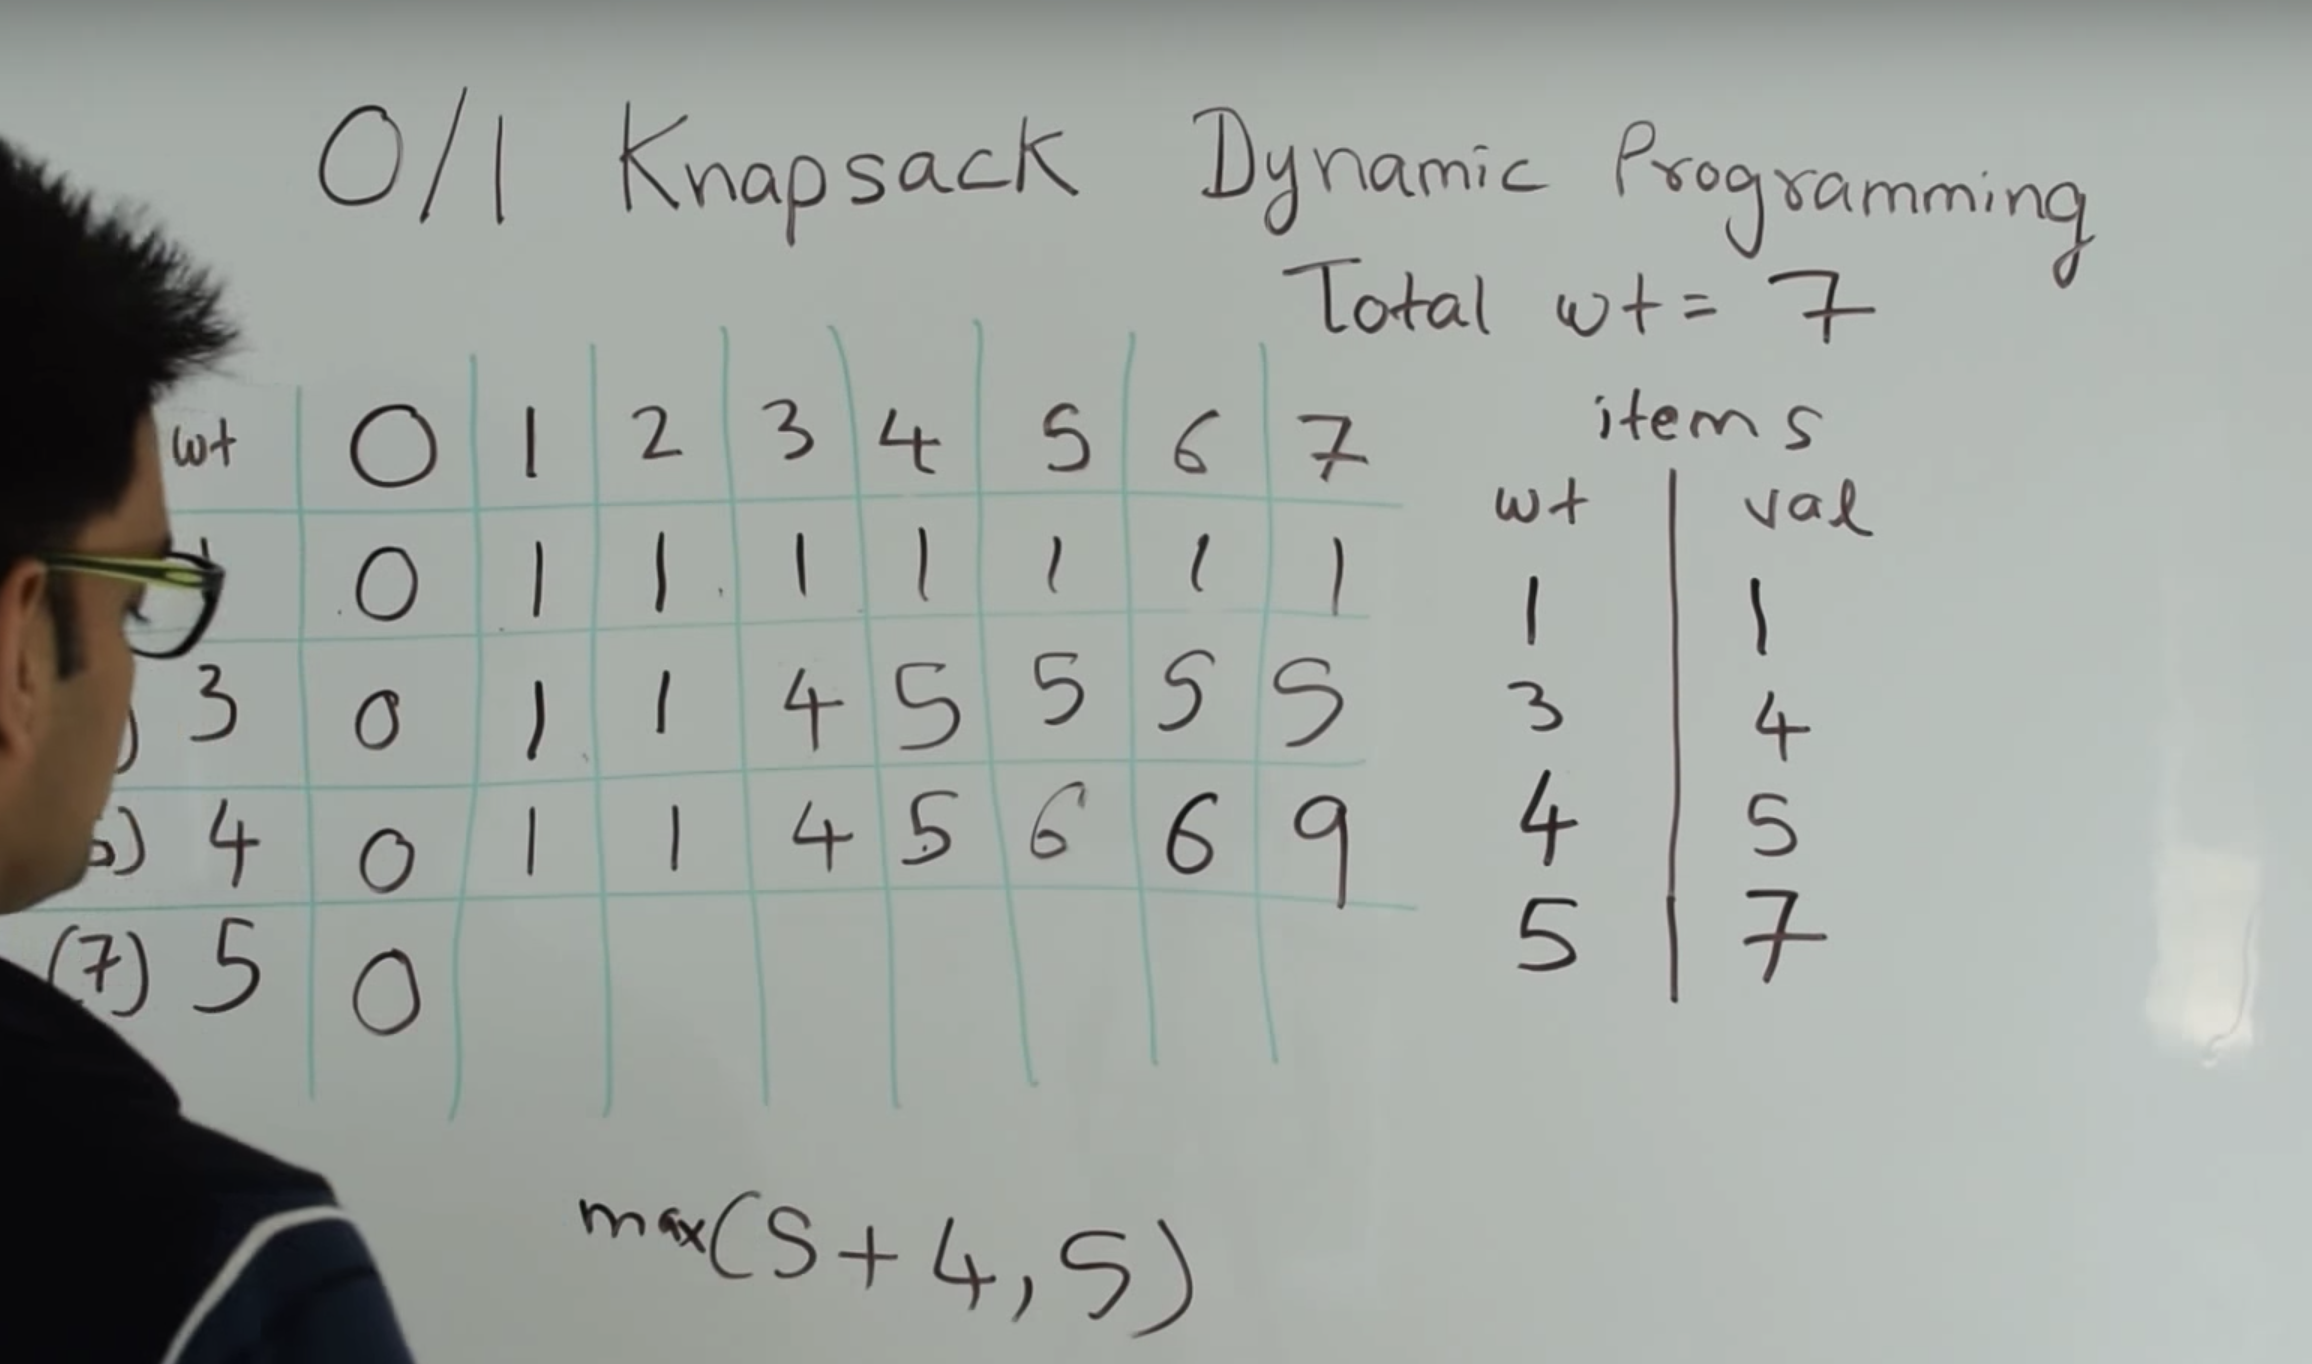 0/1 Knapsack Dynamic Programming
Total wt = 7
wt 0 1 2 3 4 5 6 7
0 1 1 1 1 1 1 1
3 0 1 1 4 5 5 5 5
4 0 1 1 4 5 6 6 9
(7) 5 0
items
wt val
1 1
3 4
4 5
5 7
max(5+4,5)